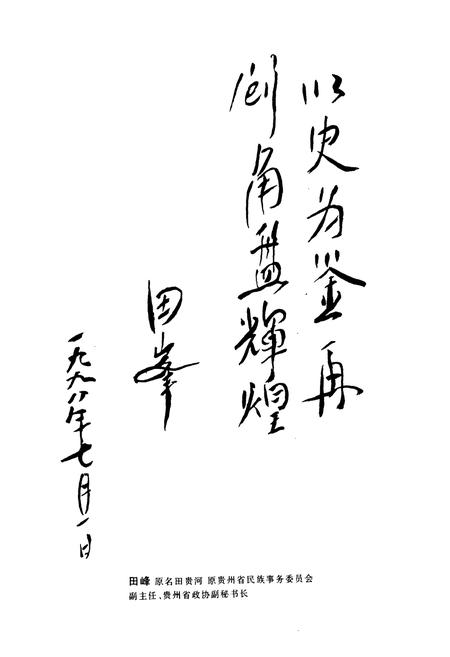 以史为鉴再
创角盘辉煌
田峯
一九九八年七月一日
田峰 原名田贵河 原贵州省民族事务委员会
副主任、贵州省政协副秘书长